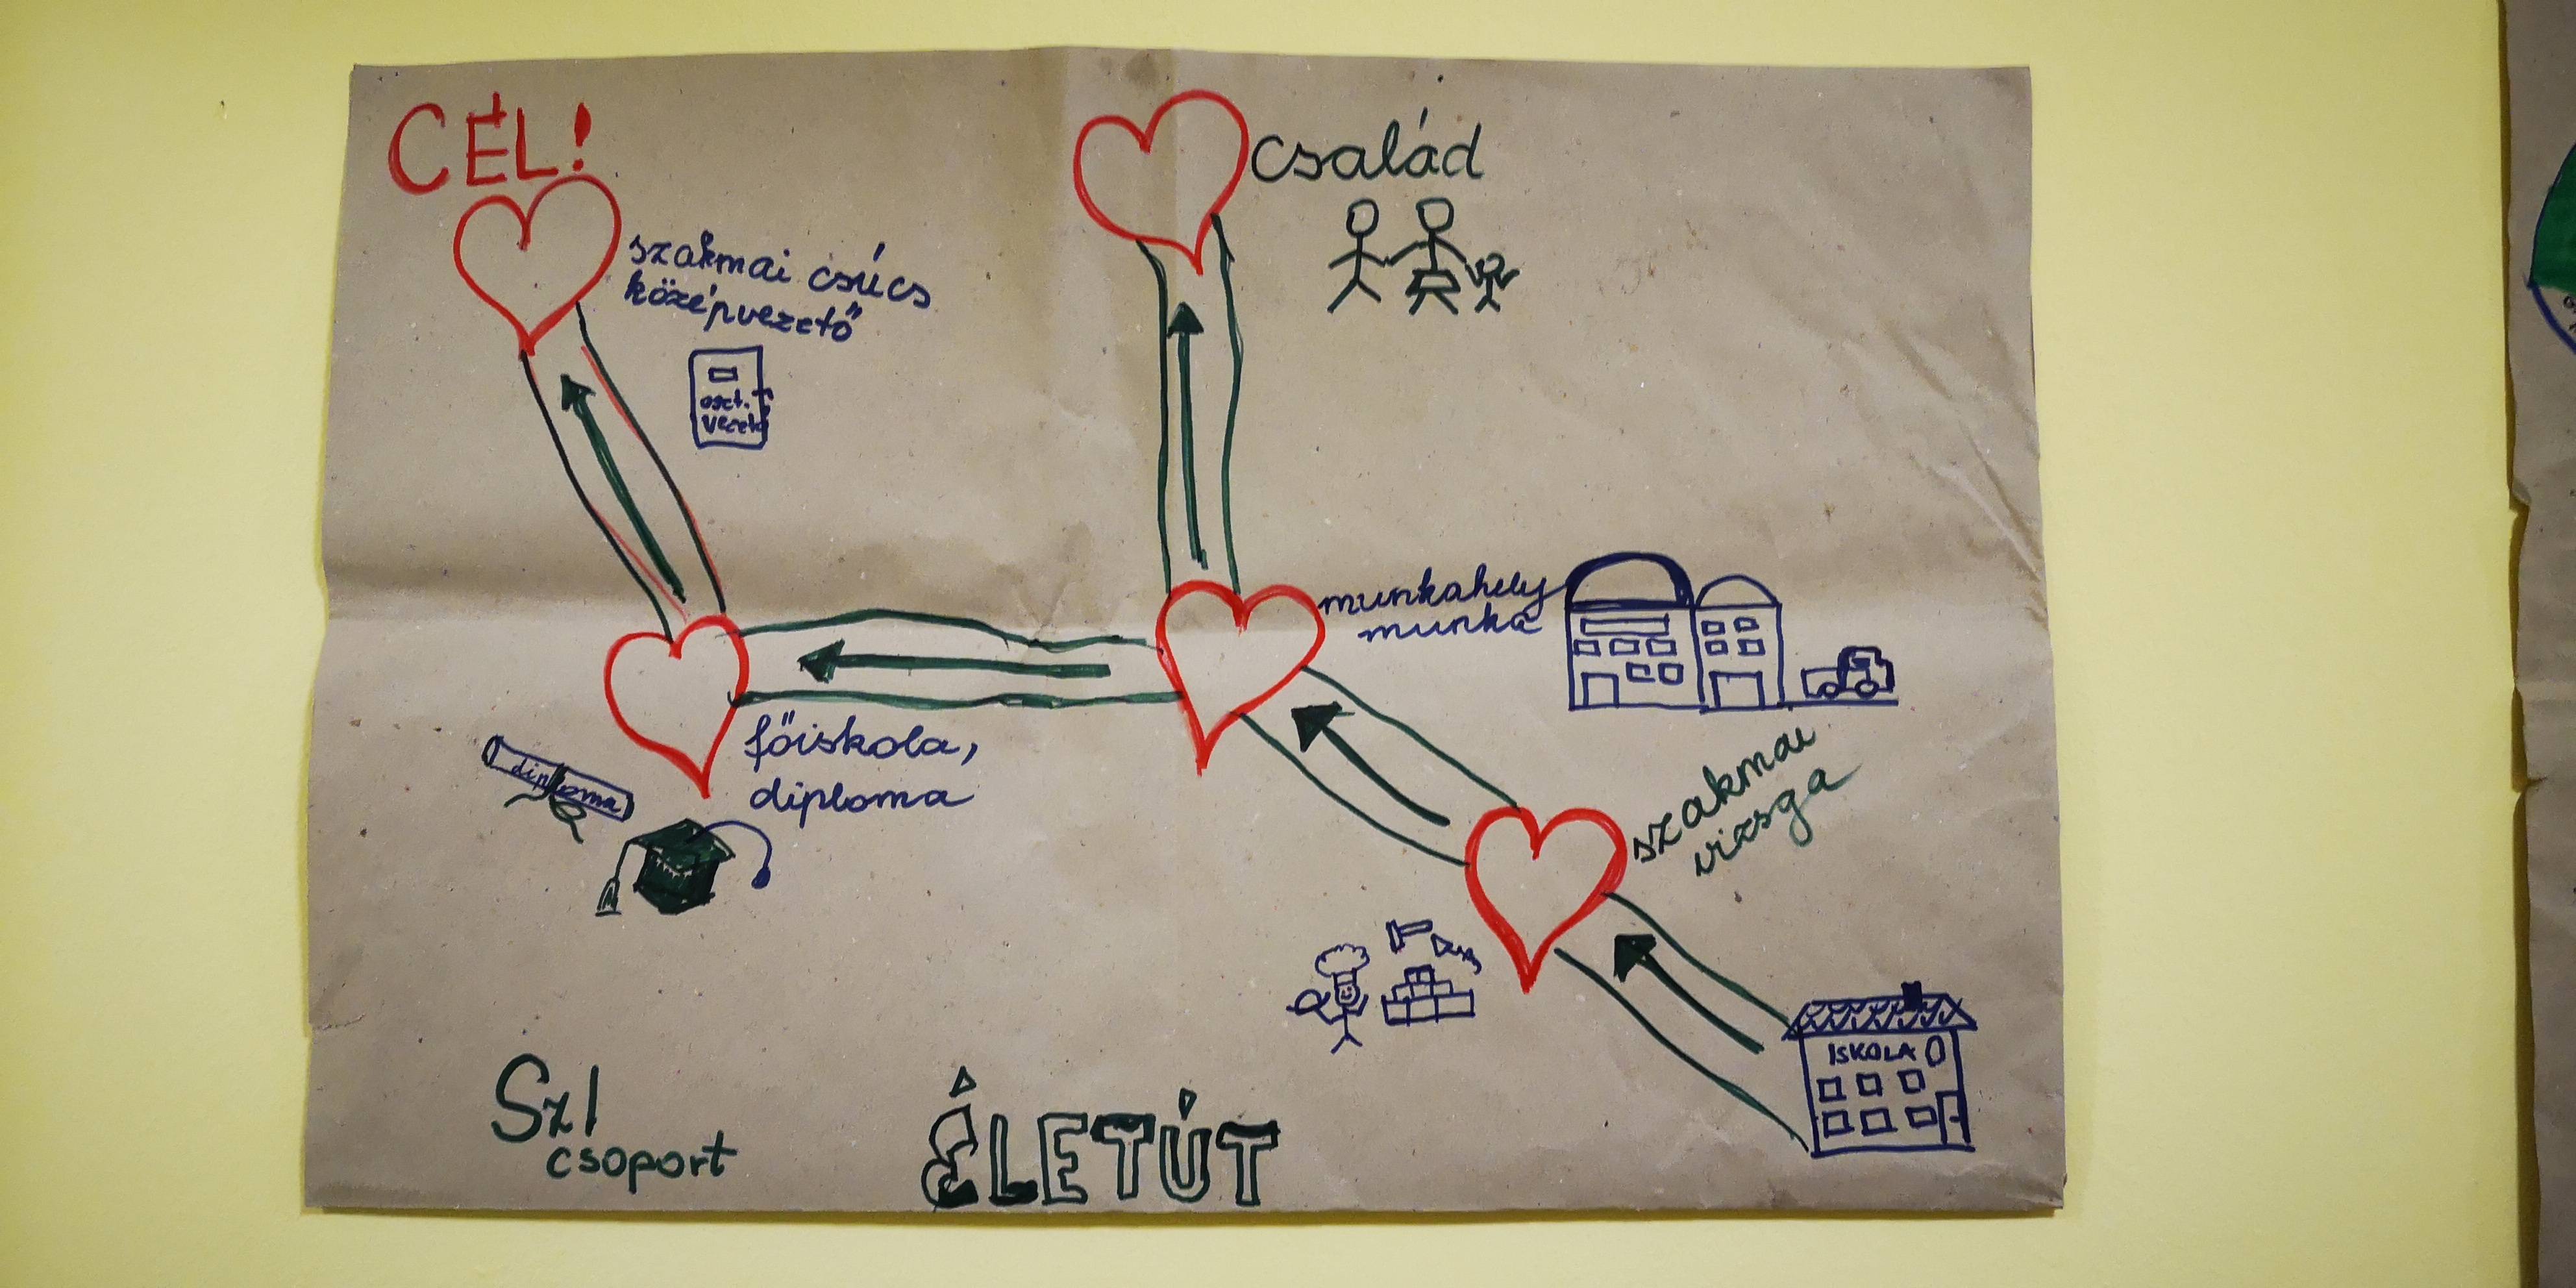 CÉL!
család
szakmai csúcs
középvezető
oszt.
vezető
munkahely
munka
főiskola,
diploma
diploma
szakmai
vizsga
ISKOLA
SzI
csoport
ÉLETÚT